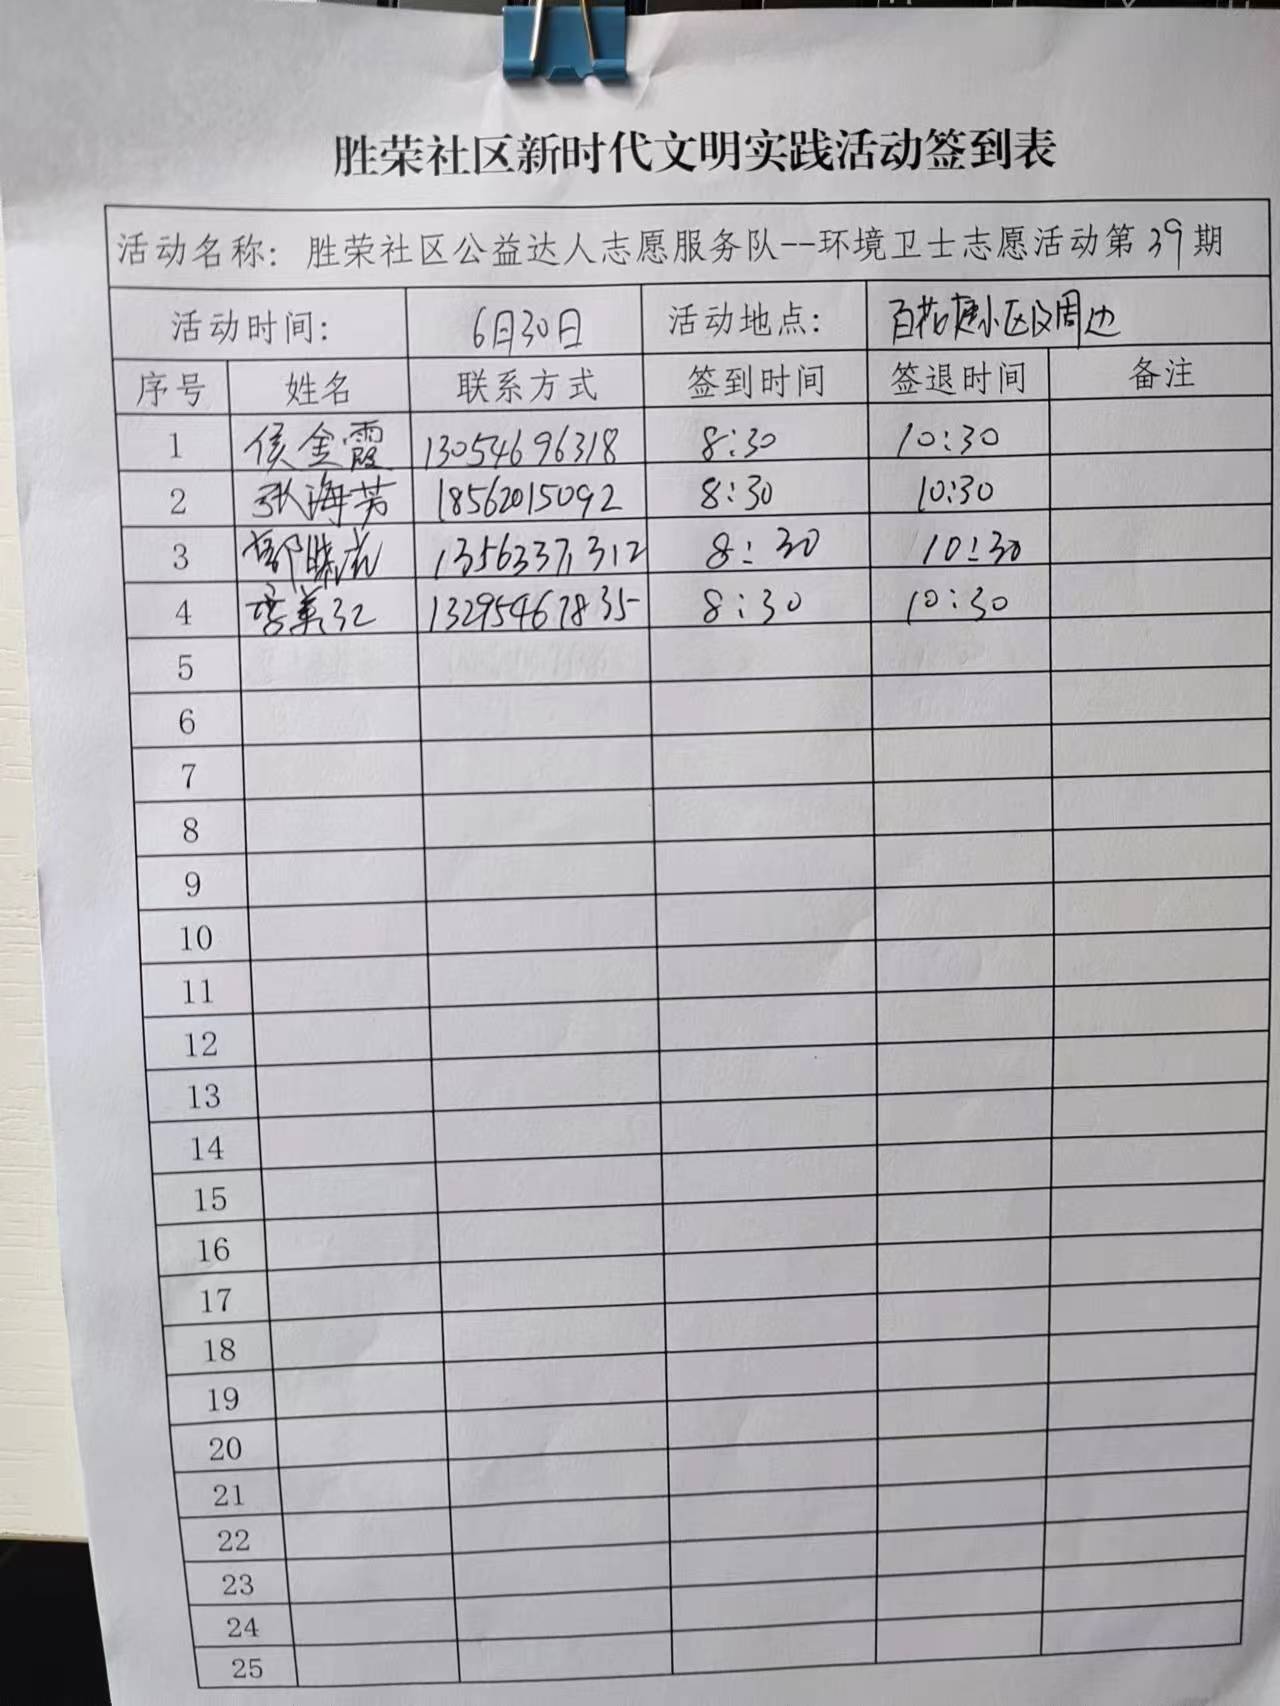 胜荣社区新时代文明实践活动签到表
活动名称：胜荣社区公益达人志愿服务队--环境卫士志愿活动第39期
活动时间： 6月30日 活动地点： 百花庭小区及周边
序号 姓名 联系方式 签到时间 签退时间 备注
1 侯金霞 13054696318 8:30 10:30
2 张海芳 18562015092 8:30 10:30
3 13563371312 8:30 10:30
4 李美红 13295467835 8:30 10:30
5
6
7
8
9
10
11
12
13
14
15
16
17
18
19
20
21
22
23
24
25